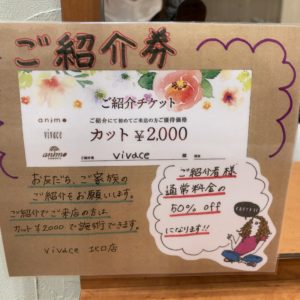 ご紹介券
anime
vivace
anime
ご紹介チケット
ご紹介にて初めてご来店の方ご優待価格
カット ¥2,000
ご紹介者 vivace 様
お友だち、ご家族の
紹介をお願いします。
ご紹介でご来店の方は、
カット¥2000で施術できます。
vivace 北口店
ご紹介者様
通常料金の
50% off
になります!!